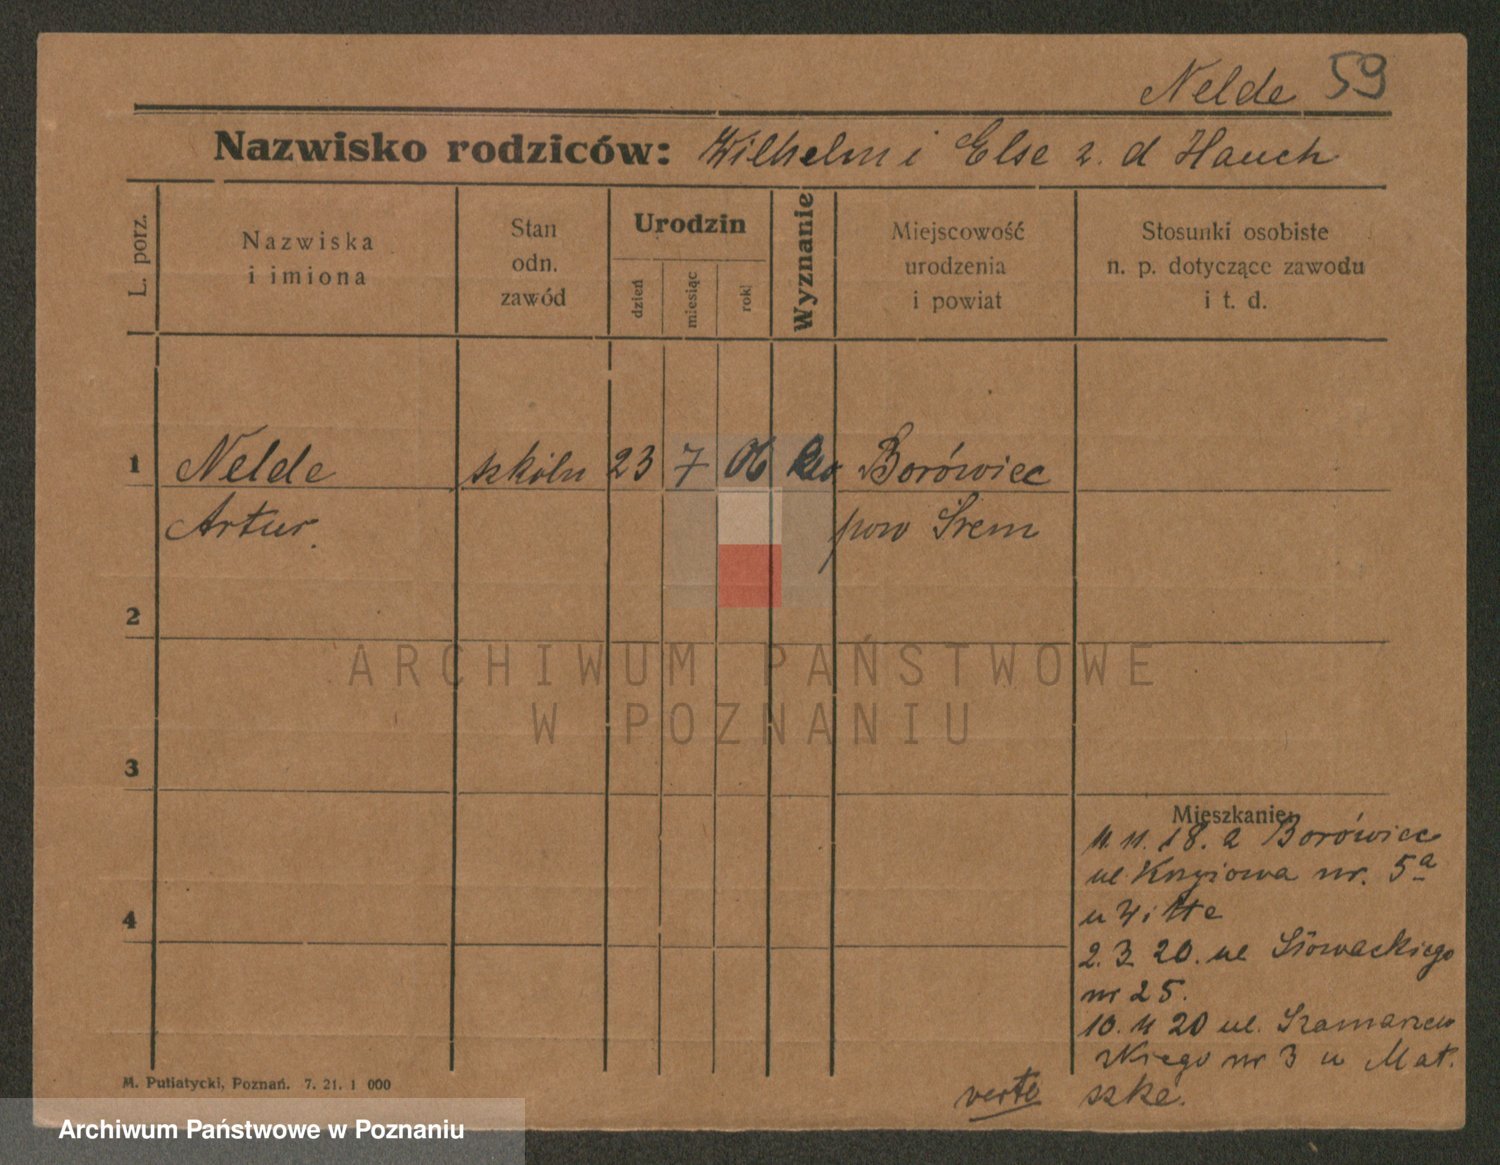 Nelde 59
Nazwisko rodziców: Wilhelm i Else z. d Hauch
L. porz.
Nazwiska
i imiona
Stan
odn.
zawód
Urodzin
dzień
miesiąc
rok
Wyznanie
Miejscowość
urodzenia
i powiat
Stosunki osobiste
n. p. dotyczące zawodu
i t. d.
1 Nelde szkoln 23 7 06 Borówiec
Artur. pow Śrem
2
ARCHIWUM PAŃSTWOWE
W POZNANIU
3
Mieszkanie:
11. 11. 18. a Borówiec
ul. nr. 5a
u Witte
4
2. 3. 20. ul Słowackiego
nr 25.
10. 11 20 ul. Szamarzew
skiego nr 3 u Mat.
szke.
verte
M. Putiatycki, Poznań. 7. 21. 1 000
Archiwum Państwowe w Poznaniu